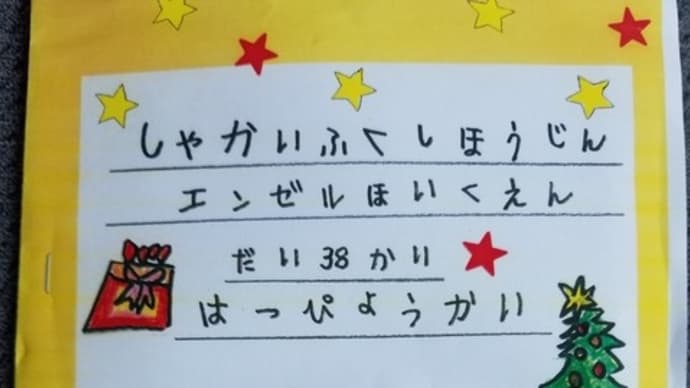 しゃかいふくしほうじん
エンゼルほいくえん
だい38かい
はっぴょうかい